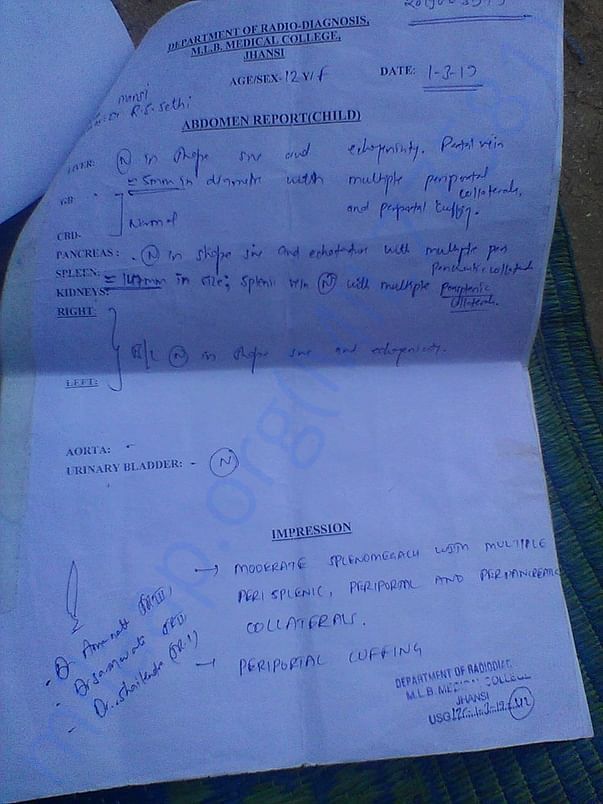 DEPARTMENT OF RADIO-DIAGNOSIS,
M.L.B. MEDICAL COLLEGE,
JHANSI
AGE/SEX-12 Y/f DATE: 1-3-19
mansi
Dr R.S. Sethi
ABDOMEN REPORT(CHILD)
LIVER: (N) in shape size and echogenicity. Portal vein
= 5mm in diameter with multiple periportal
collaterals,
and periportal cuffing.
GB
Normal
CBD-
PANCREAS: (N) in shape size and echotexture with multiple peri
pancreatic collaterals
SPLEEN: = 147mm in size; splenic vein (N) with multiple perisplenic
collaterals.
KIDNEYS:
RIGHT:
B/L (N) in shape size and echogenicity.
LEFT:
AORTA: -
URINARY BLADDER: - (N)
IMPRESSION
→ MODERATE SPLENOMEGALY WITH MULTIPLE
PERISPLENIC, PERIPORTAL AND PERIPANCREATIC
COLLATERALS.
→ PERIPORTAL CUFFING
- Dr Amarnath (JR III)
- Dr Saraswati JR II
- Dr. Shailendra (JR-1)
DEPARTMENT OF RADIODIAG
M.L.B. MEDICAL COLLEGE
JHANSI
USG